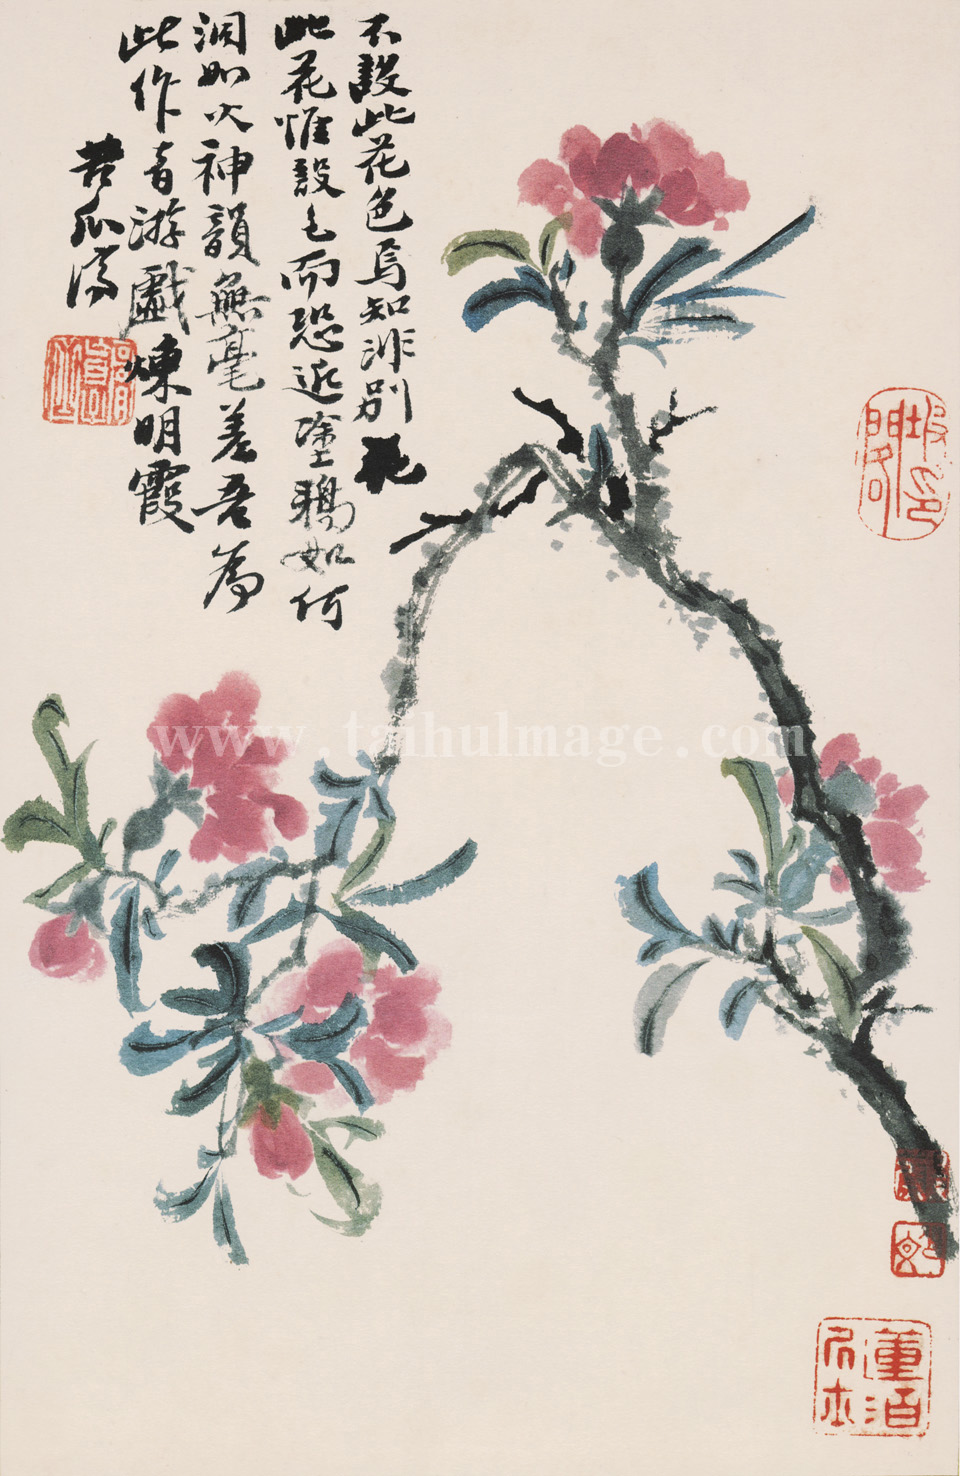 不設此花色焉知非別花
此花惟設色而恐近塗鴉如何
洞如火神韻無毫差吾為
此作者游戲煉明霞
苦瓜濟
www.taihuImage.com